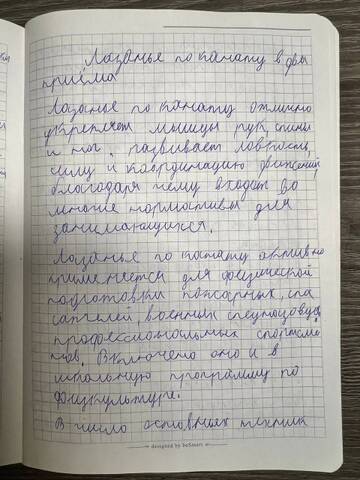 Лазанье по канату в два
приёма
Лазанье по канату отлично
укрепляет мышцы рук, спины
и ног, развивает ловкость,
силу и координацию движений
благодаря чему входит во
многие нормативы для
занимающихся.
Лазанье по канату активно
применяется для физической
подготовки пожарных, спа
сателей, военных спецназовцев,
профессиональных спортсме
нов. Включено оно и в
школьную программу по
физкультуре.
В число основных техник
designed by beSmart